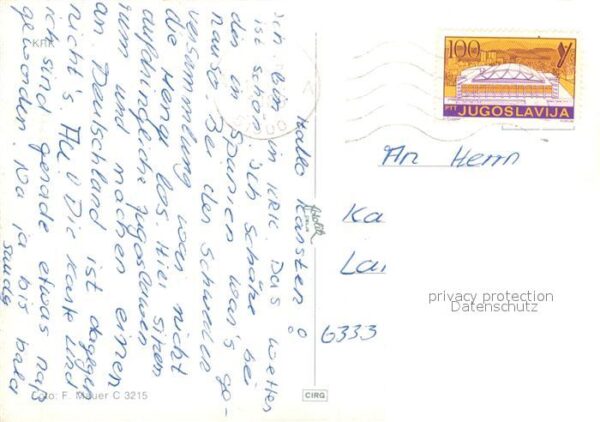 Krk
Hallo Karsten!
ich bin in KRK. Das Wetter
ist schön. Ich schätze bei
dir in Spanien war's ge-
nauso. Bei der
versammlung war nicht
die Menge los. Hier sitzen
aufdringliche Jugoslawen
rum und machen einen
an. Deutschland ist dagegen
nicht's. Ha! Die Karte und
ich sind gerade etwas naß
geworden. Na ja bis bald
Foto: F. Mauer C 3215
CIRG
100
PTT JUGOSLAVIJA
An Herrn
Ka
Lai
6333
privacy protection
Datenschutz